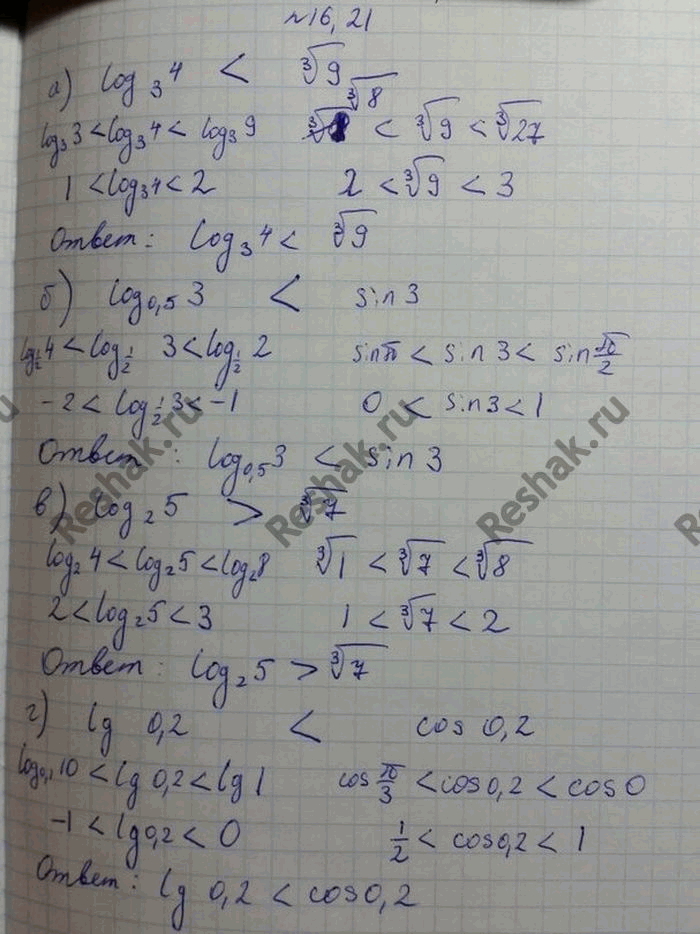 №16,21
а) log₃4 < ∛9
log₃3 < log₃4 < log₃9 ∛8 < ∛9 < ∛27
1 < log₃4 < 2 2 < ∛9 < 3
Ответ: log₃4 < ∛9
б) log₀,₅3 < sin3
log½4 < log½3 < log½2 sinπ < sin3 < sin π/2
-2 < log½3 < -1 0 < sin3 < 1
Ответ: log₀,₅3 < sin3
в) log₂5 > ∛7
log₂4 < log₂5 < log₂8 ∛1 < ∛7 < ∛8
2 < log₂5 < 3 1 < ∛7 < 2
Ответ: log₂5 > ∛7
г) lg 0,2 < cos 0,2
log₀,₁10 < lg 0,2 < lg 1 cos π/3 < cos0,2 < cos0
-1 < lg0,2 < 0 1/2 < cos0,2 < 1
Ответ: lg 0,2 < cos0,2
Reshak.ru
Reshak.ru